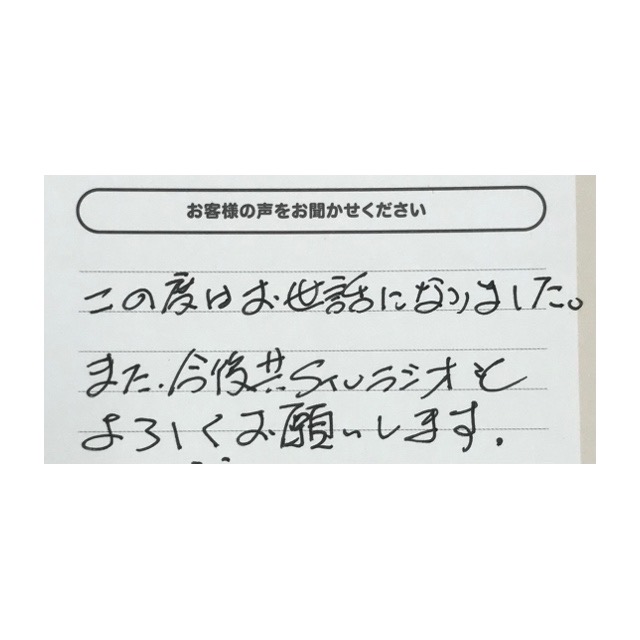 お客様の声をお聞かせください
この度はお世話になりました。
また、今後共 ラジオを
よろしくお願いします。